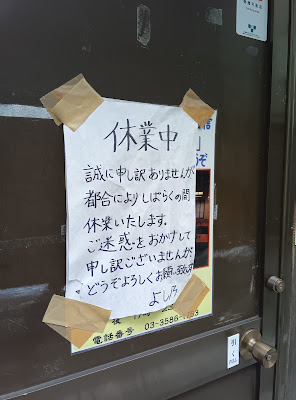 休業中
誠に申し訳ありませんが
都合によりしばらくの間
休業いたします。
ご迷惑をおかけして
申し訳ございませんが
どうぞよろしくお願い致します
よし乃
電話番号 03-3586-
引く
PULL